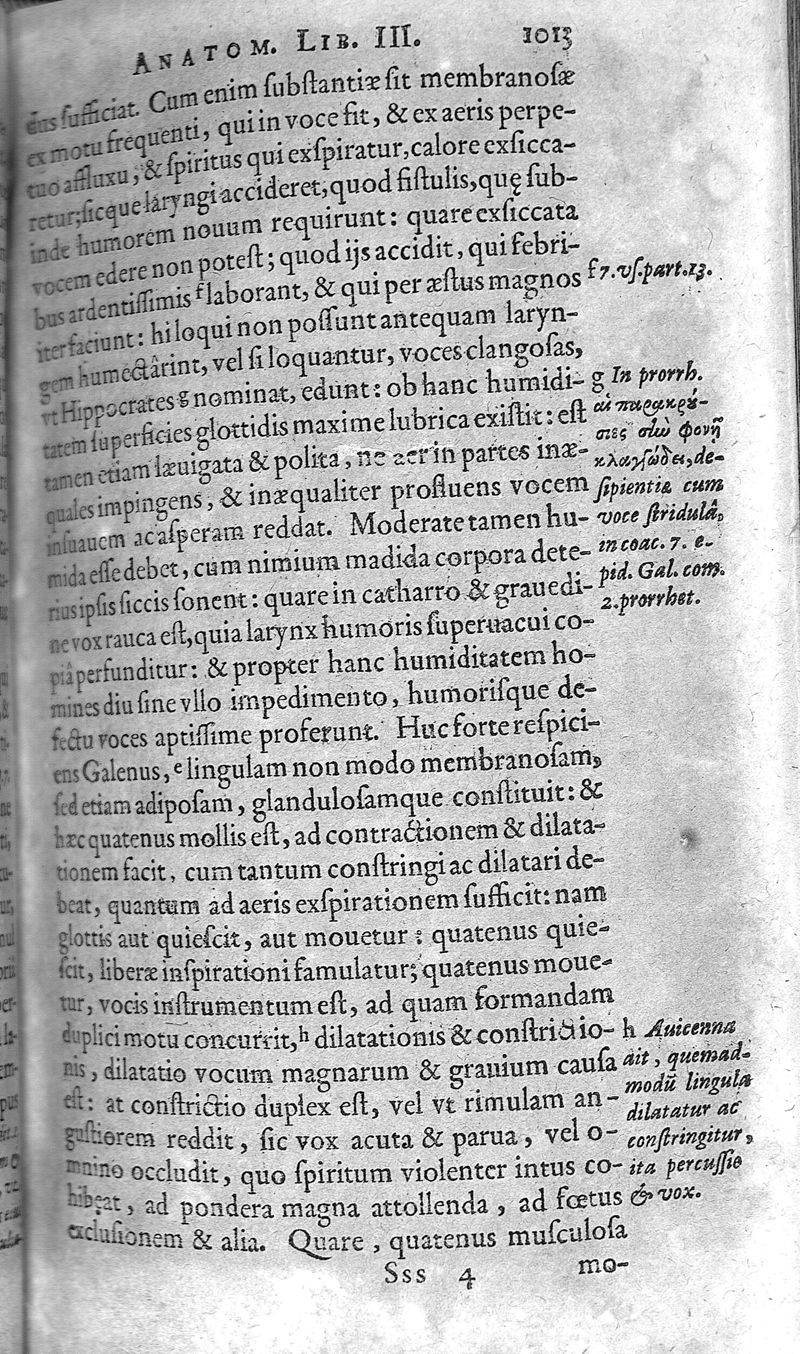 ANATOM. LIB. III. 1013
eius sufficiat. Cum enim substantiæ sit membranosæ
ex motu frequenti, qui in voce fit, & ex aeris perpe-
tuo affluxu, & spiritus qui exspiratur, calore exsicca-
retur; sicque laryngi accideret, quod fistulis, quę sub-
inde humorem nouum requirunt: quare exsiccata
vocem edere non potest; quod ijs accidit, qui febri-
bus ardentissimis f laborant, & qui per æstus magnos
iter faciunt: hi loqui non possunt antequam laryn-
gem humectârint, vel si loquantur, voces clangosas,
vt Hippocrates g nominat, edunt: ob hanc humidi-
tatem superficies glottidis maxime lubrica existit: est
tamen etiam læuigata & polita, ne aer in partes inæ-
quales impingens, & inæqualiter profluens vocem
insuauem ac asperam reddat. Moderate tamen hu-
mida esse debet, cum nimium madida corpora dete-
rius ipsis siccis sonent: quare in catharro & grauedi-
ne vox rauca est, quia larynx humoris superuacui co-
piâ perfunditur: & propter hanc humiditatem ho-
mines diu sine vllo impedimento, humorisque de-
fectu voces aptissime proferunt. Huc forte respici-
ens Galenus, e lingulam non modo membranosam,
sed etiam adiposam, glandulosamque constituit: &
hæc quatenus mollis est, ad contractionem & dilata-
tionem facit, cum tantum constringi ac dilatari de-
beat, quantum ad aeris exspirationem sufficit: nam
glottis aut quiescit, aut mouetur: quatenus quie-
scit, liberæ inspirationi famulatur; quatenus moue-
tur, vocis instrumentum est, ad quam formandam
duplici motu concurrit, h dilatationis & constrictio-
nis, dilatatio vocum magnarum & grauium causa
est: at constrictio duplex est, vel vt rimulam an-
gustiorem reddit, sic vox acuta & parua, vel o-
mnino occludit, quo spiritum violenter intus co-
hibeat, ad pondera magna attollenda, ad fœtus
exclusionem & alia. Quare, quatenus musculosa
Sss 4 mo-
f 7. vs. part. 13.
g In prorrh.
αἱ παρακρύ-
σιες σὺν φονῇ
κλαγγώδει, de-
sipientiæ cum
voce stridulâ,
in coac. 7. e-
pid. Gal. com.
2. prorrhet.
h Auicenna
ait, quemad-
modū lingula
dilatatur ac
constringitur,
ita percussio
& vox.